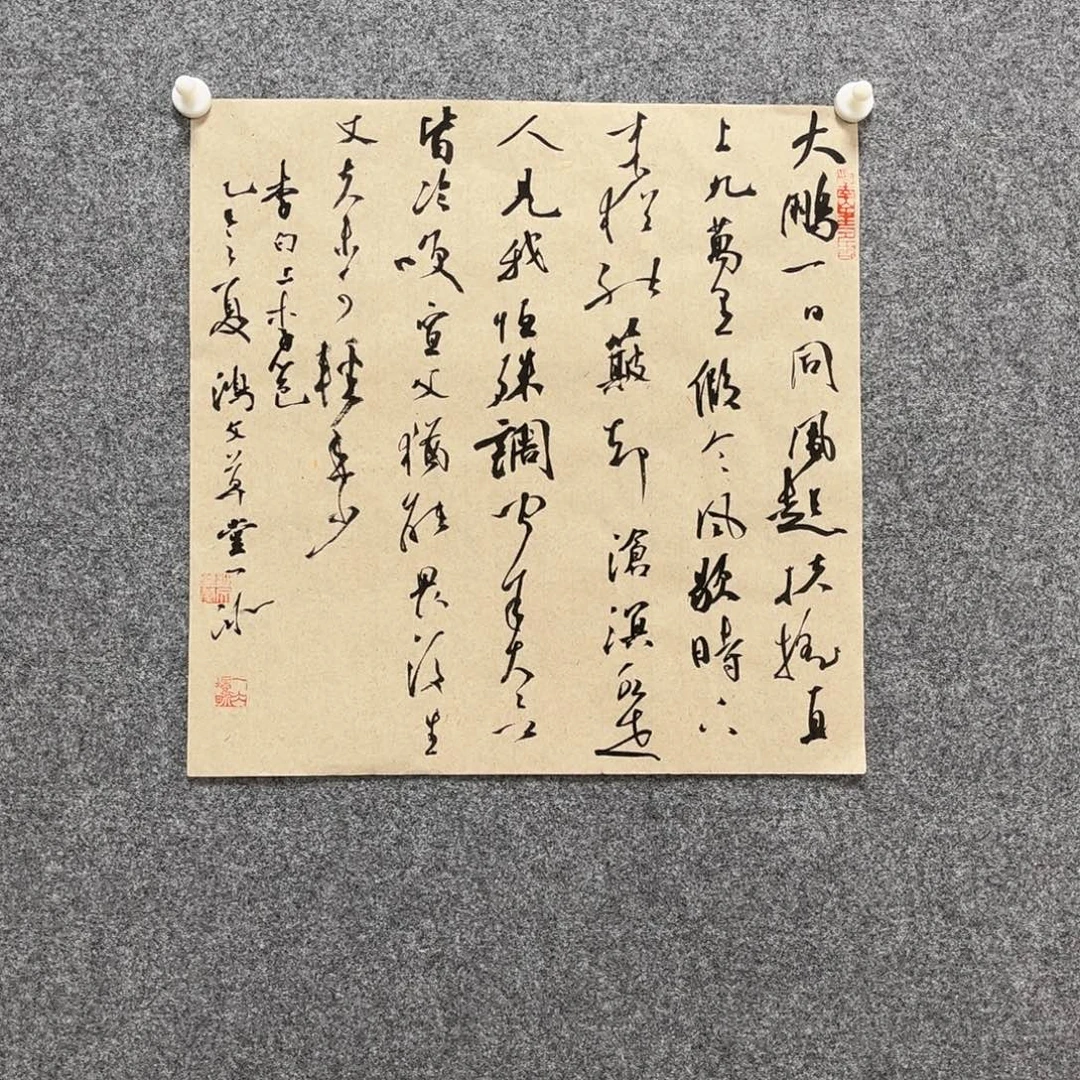 大鵬一日同風起扶搖直
上九萬里假令風歇時下
来猶能簸却滄溟水世
人見我恒殊調聞余大言
皆冷咲宣父猶能畏後生
丈夫未可輕年少
李白上李邕
乙巳夏鴻文草堂一冰